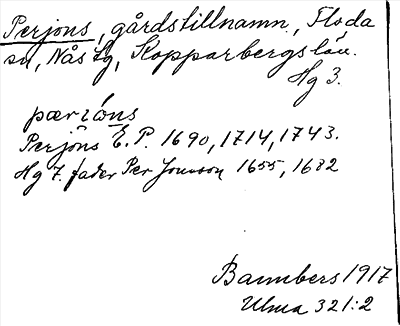 Perjons, gårdstillnamn, Floda
sn, Nås tg, Kopparbergs län.
Hg 3.
pærións
Perjöns E. P. 1690, 1714, 1743.
Hg 7. fader Per Jonsson 1655, 1682
Bannbers 1917
Ulma 321:2